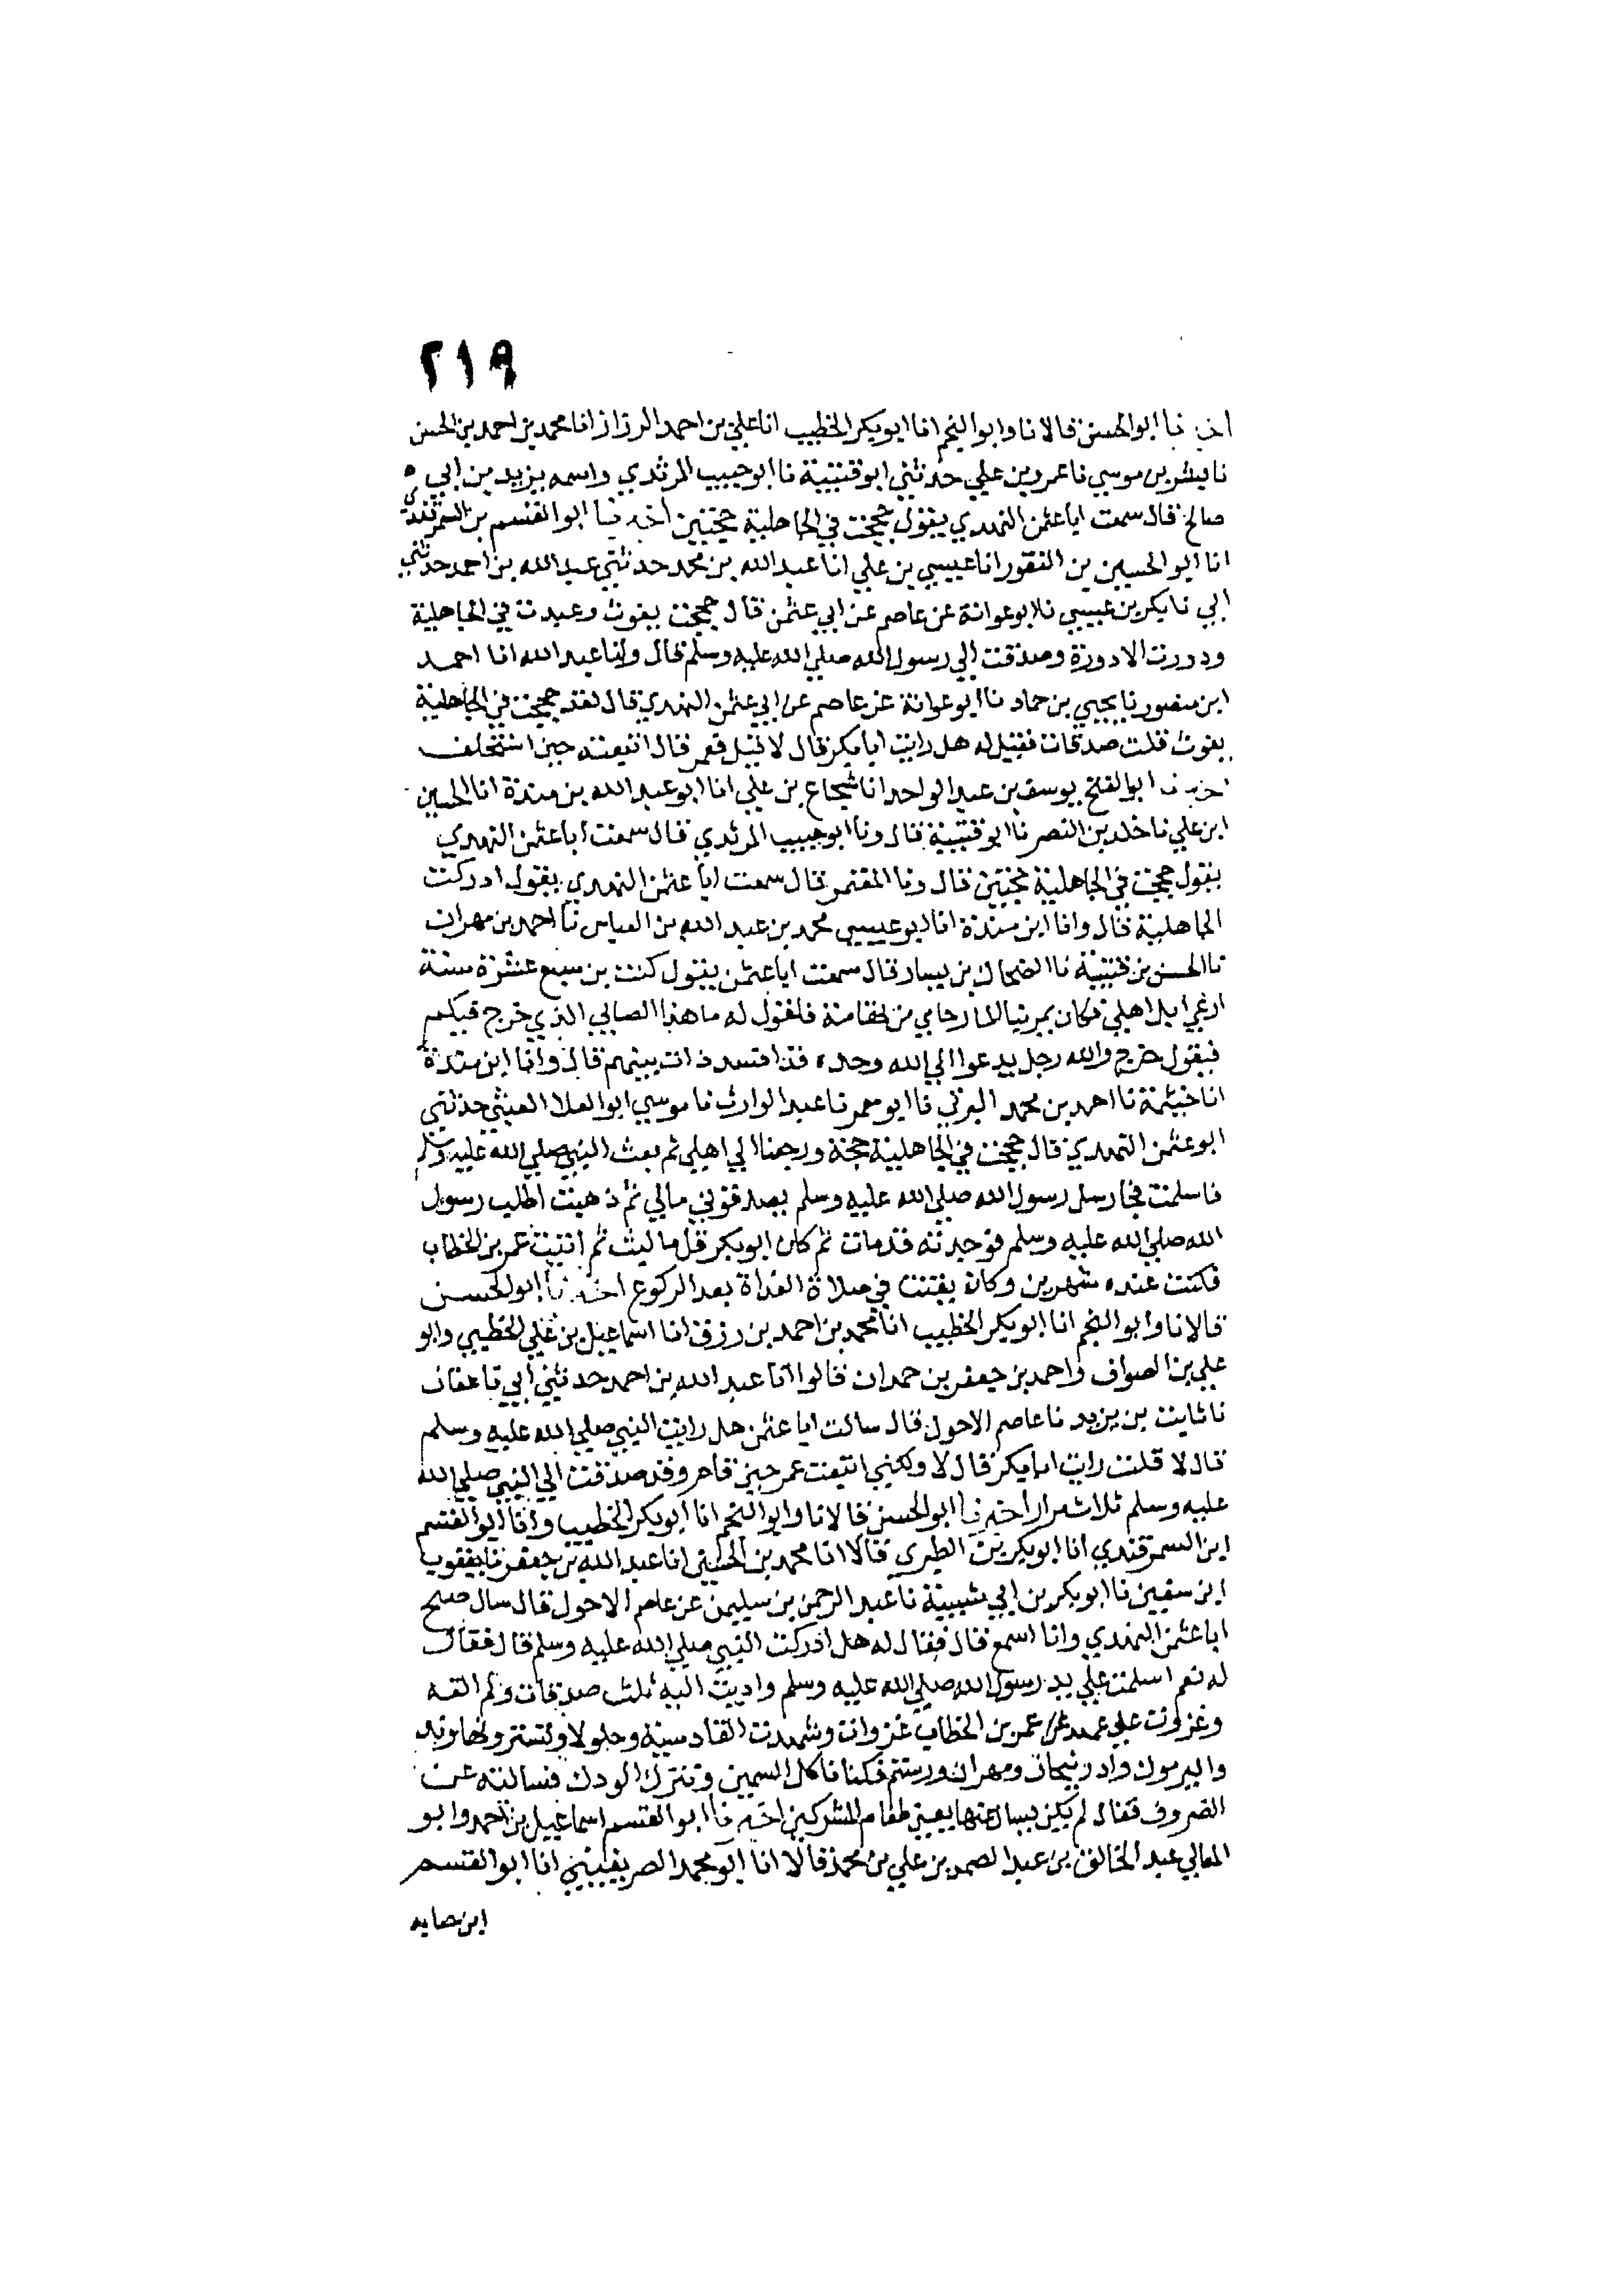 ٢١٩
اخبرنا ابوالحسن قالا نا وابوالنجم انا ابوبكر الخطيب انا علي بن احمد الرزاز انا محمد بن احمد بن الحسن
نا بشر بن موسي نا عمرو بن علي حدثني ابو قتيبة نا ابو حبيب المرثدي واسمه يزيد بن ابي
صالح قال سمعت ابا عثمن النهدي يقول حججت في الجاهلية حجتين اخبرنا ابو القسم بن السمرقندي
انا ابو الحسين بن النقور انا عيسي بن علي انا عبد الله بن محمد حدثني عبد الله بن احمد حدثني
ابي نا بكر بن عيسي نا ابو عوانة عن عاصم عن ابي عثمن قال حججت يغوث وعبدت في الجاهلية
ودورت الادورة وصدقت الي رسول الله صلي الله عليه وسلم قال ونا عبد الله انا احمد
ابن منصور نا يحيي بن حماد نا ابو عوانة عن عاصم عن ابي عثمن النهدي قال لقد حججت في الجاهلية
يغوث قلت صدقات فقيل له هل رايت ابا بكر قال لا قيل فعمر قال اتبعته حين استخلف
اخبرنا ابو الفتح يوسف بن عبد الواحد انا شجاع بن علي انا ابو عبد الله بن مندة انا الحسين
ابن علي نا خلد بن النضر نا ابو قتيبة قال ونا ابو حبيب المرثدي قال سمعت ابا عثمن النهدي
يقول حججت في الجاهلية حجتين قال ونا المعتمر قال سمعت ابا عثمن النهدي يقول ادركت
الجاهلية قال وانا ابن مندة انا ابو عيسي محمد بن عبد الله بن العباس نا احمد بن مهران
نا الحسن بن قتيبة نا الضحاك بن يسار قال سمعت ابا عثمن يقول كنت بن سبع عشرة سنة
ارعي ابل اهلي فكان يمر بنا المار جاي من تهامة فاقول له ما هذا الصابي الذي خرج فيكم
فيقول خرج والله رجل يدعوا الي الله وحده قد افسد ذات بينهم قال وانا ابن مندة
انا خيثمة نا احمد بن محمد البرتي نا ابو معمر نا عبد الوارث نا موسي ابو العلا العيشي حدثني
ابو عثمن النهدي قال حججت في الجاهلية حجة ورجعنا الي اهلي ثم بعث النبي صلي الله عليه وسلم
فاسلمت فجا رسل رسول الله صلي الله عليه وسلم يصدقوني مالي ثم ذهبت اطلب رسول
الله صلي الله عليه وسلم فوجدته قد مات ثم كان ابو بكر قل ما لبث ثم اتيت عمر بن الخطاب
فكنت عنده شهرين وكان يقنت في صلاة الغداة بعد الركوع اخبرنا ابو الحسن
قالا نا وابو النجم انا ابو بكر الخطيب انا محمد بن احمد بن رزق انا اسماعيل بن علي الخطبي وابو
علي بن الصواف واحمد بن جعفر بن حمدان قالوا انا عبد الله بن احمد حدثني ابي نا عفان
نا ثابت بن يزيد نا عاصم الاحول قال سالت ابا عثمن هل رايت النبي صلي الله عليه وسلم
قال لا قلت رايت ابا بكر قال لا ولكني اتبعت عمر حين قام وقد صدقت الي النبي صلي الله
عليه وسلم ثلاث مرار اخبرنا ابو الحسن قالا نا وابو النجم انا ابو بكر الخطيب وانا ابو القسم
ابن السمرقندي انا ابو بكر بن الطبري قالا انا محمد بن الحسين انا عبد الله بن جعفر نا يعقوب
ابن سفين نا ابو بكر بن ابي شيبة نا عبد الرحمن بن سليمن عن عاصم الاحول قال سال صبيح
ابا عثمن النهدي وانا اسمع قال فقال له هل ادركت النبي صلي الله عليه وسلم قال فقال
له نعم اسلمت علي يد رسول الله صلي الله عليه وسلم واديت اليه ثلث صدقات ولم القه
وغزوت علي عهد عمر بن الخطاب غزوات وشهدت القادسية وجلولا وتستر ونهاوند
واليرموك واذربيجان ومهران ورستم فكنا ناكل السمين ونترك الودك فسالته عن
الضروف فقال لم يكن يسال عنها يعني طعام المشركين اخبرنا ابو القسم اسماعيل بن احمد وابو
المعالي عبد الخالق بن عبد الصمد بن علي بن محمد قالا انا ابو محمد الصريفيني انا ابو القسم
ابن حبابه